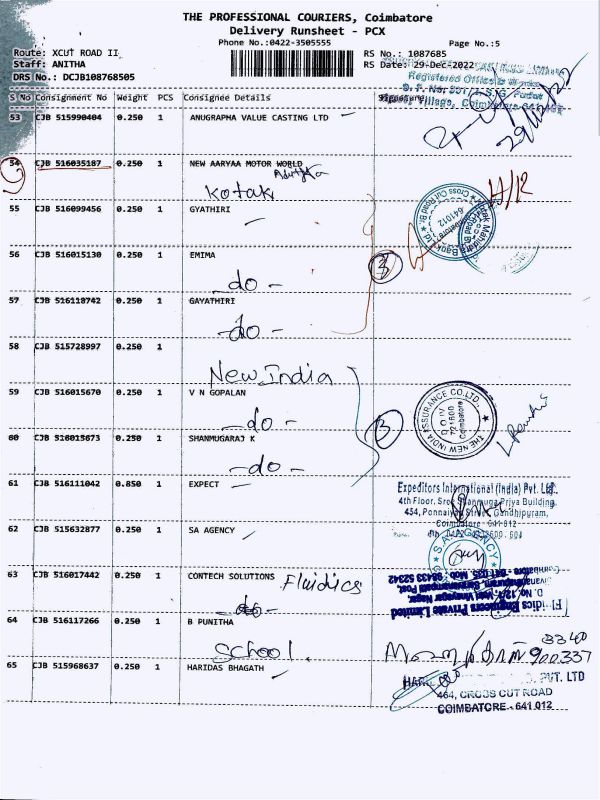 THE PROFESSIONAL COURIERS, Coimbatore
Delivery Runsheet - PCX
Phone No.:0422-3505555
Page No.:5
Route: XCUT ROAD II
RS No.: 1087685
Staff: ANITHA
RS Date: 29-Dec-2022
DRS No.: DCJB108768505
Registered Office
S No Consignment No Weight PCS Consignee Details
53 CJB 515990404 0.250 1 ANUGRAPHA VALUE CASTING LTD
54 CJB 516035187 0.250 1 NEW AARYAA MOTOR WORLD
Kotak
55 CJB 516099456 0.250 1 GYATHIRI
56 CJB 516015130 0.250 1 EMIMA
- do -
3
57 CJB 516118742 0.250 1 GAYATHIRI
- do -
58 CJB 515728997 0.250 1
New India
59 CJB 516015670 0.250 1 V N GOPALAN
- do -
3
THE NEW INDIA ASSURANCE CO. LTD.
D O IV
721600
Coimbatore
60 CJB 516015673 0.250 1 SHANMUGARAJ K
- do -
61 CJB 516111042 0.850 1 EXPECT
Expeditors International (India) Pvt. Ltd.
4th Floor, Sree Shanmuga Priya Building,
454, Ponnaiyan Street, Gandhipuram,
Coimbatore - 641 012
62 CJB 515632877 0.250 1 SA AGENCY
63 CJB 516017442 0.250 1 CONTECH SOLUTIONS
Fluidics
Fluidics Engineers Private Limited
64 CJB 516117266 0.250 1 B PUNITHA
School.
65 CJB 515968637 0.250 1 HARIDAS BHAGATH
PVT. LTD
464, CROSS CUT ROAD
COIMBATORE - 641 012